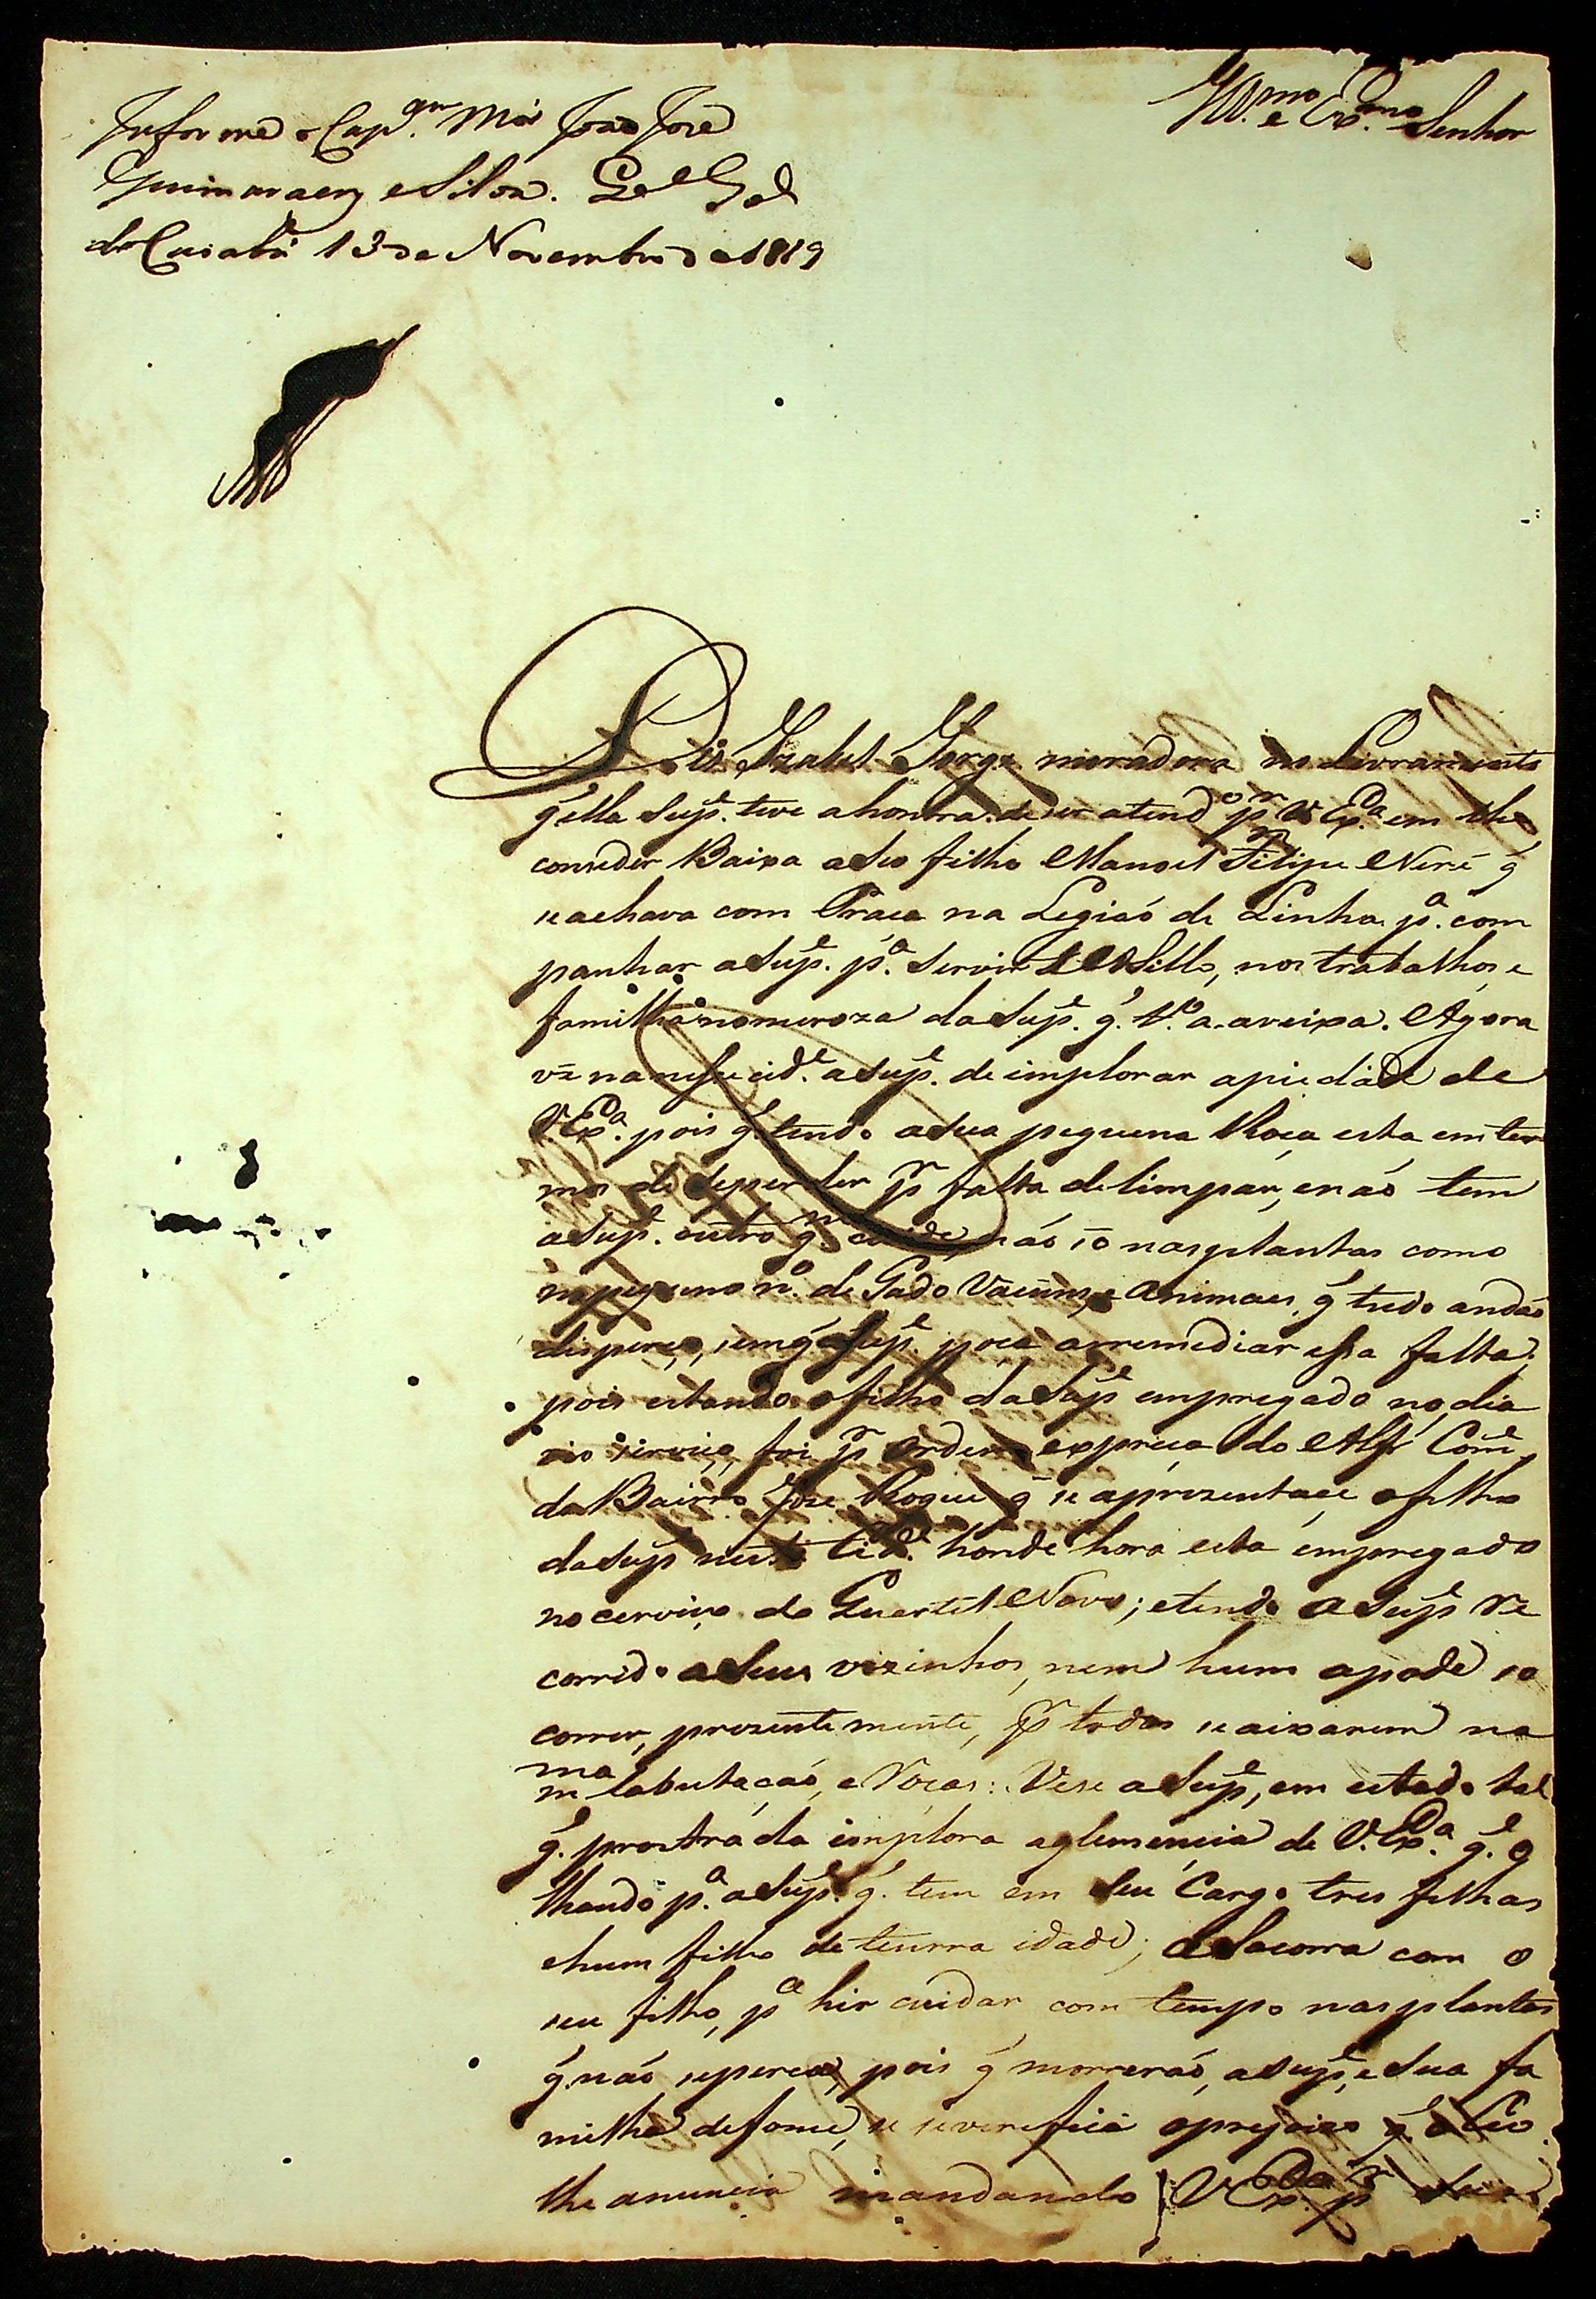 Informe o Cap.am Mor João Jozé
Guimaraens e Silva. Qel Gal
do Cuiabá 13 de Novembro de 1819
Illmo. e Exmo. Senhor
Diz Izabel Jorge moradora no Livramento
q' ella Supe. teve a honra de ser atendo pr V Exa. em lhe
conseder Baixa a seo filho Manoel Filipe Neré q'
se achava com Praça na Legiaõ de Linha pa. com
panhar a Supe. pa. Servir, nos trabalhos, e
familha nomeroza da Supe. q'. Agora
na nesecide. a Supe. de implorar a piedade de
V. Exa. pois q' tendo a sua pequena Roça esta em ter
mos de se perder pr falta de limpar, e naõ tem
a Supe. outro q'm cuide, naõ só nas plantas como
no pequeno no. de Gado Vacum, e animaes, q' tudo andaõ
disperço, sem q' a Supe. poça arremediar essa falta;
pois estando o filho da Supe empregado no dia
rio serviço, foi pr ordem expreça do Alfs Come
do Bairro Joze Roque q' se aprezentaçe o filho
da Supe nesta Cide. honde hora esta empregado
no cerviço do Quartel Novo; e tendo a Supe re
corrido a seus vizinhos, nem hum a pode so
correr, prezentemente, pr todos se aixarem na
mma labutaçaõ, e Roças: Vese a Supe, em estado tal
q'. prostráda implora a glemencia de V. Exa. q'. o
lhando pa. a Supe. q'. tem em seu Cargo tres filhas
e hum filho de tenrra idade; a Socorra com o
seu filho, pa hir cuidar com tempo nas plantas
q' naõ se perca, pois q' morreraõ, a Supe, e sua fa
milha de fome, se severefica o prejuizo q' o Céo
lhe anuncia mandando V Exa. pr